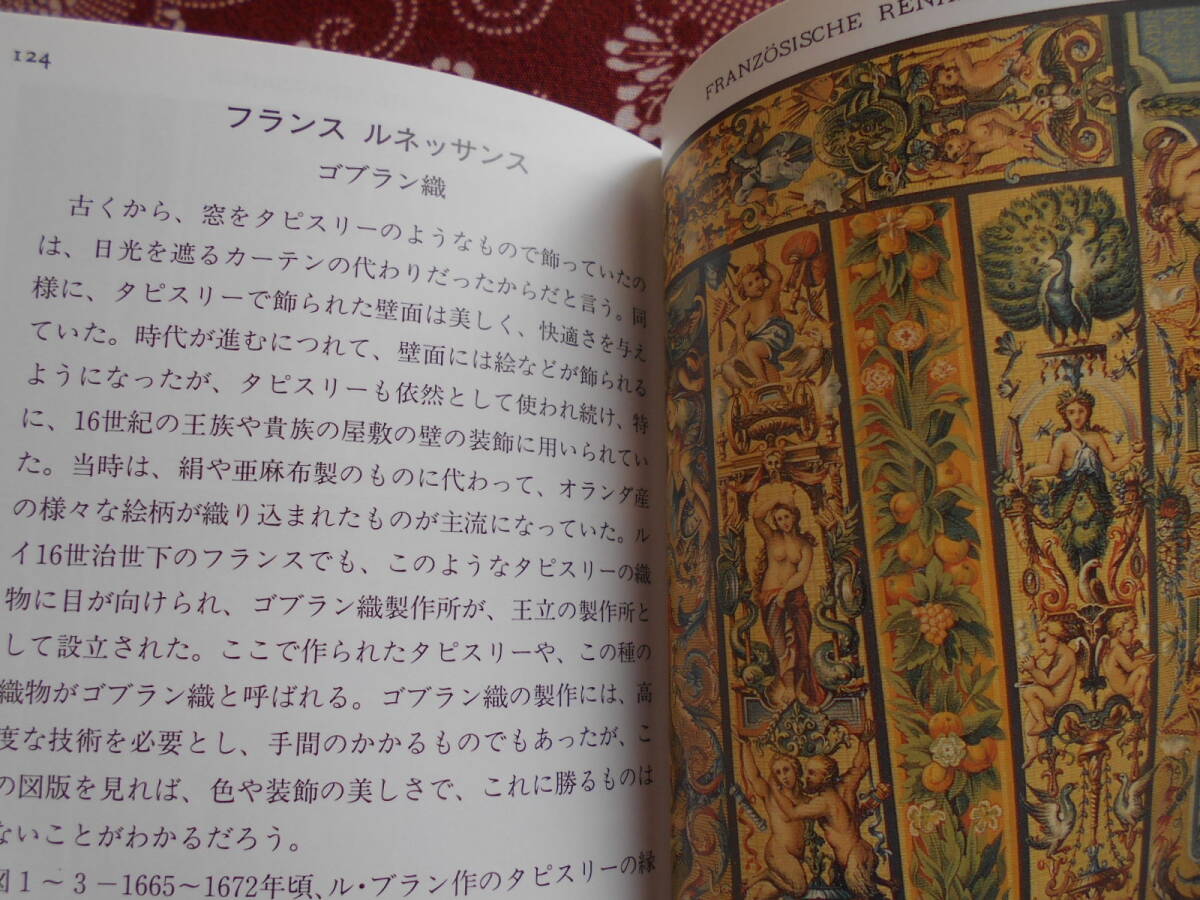 124
フランス ルネッサンス
ゴブラン織
古くから、窓をタピスリーのようなもので飾っていたの
は、日光を遮るカーテンの代わりだったからだと言う。同
様に、タピスリーで飾られた壁面は美しく、快適さを与え
ていた。時代が進むにつれて、壁面には絵などが飾られる
ようになったが、タピスリーも依然として使われ続け、特
に、16世紀の王族や貴族の屋敷の壁の装飾に用いられてい
た。当時は、絹や亜麻布製のものに代わって、オランダ産
の様々な絵柄が織り込まれたものが主流になっていた。ル
イ16世治世下のフランスでも、このようなタピスリーの織
物に目が向けられ、ゴブラン織製作所が、王立の製作所と
して設立された。ここで作られたタピスリーや、この種の
織物がゴブラン織と呼ばれる。ゴブラン織の製作には、高
度な技術を必要とし、手間のかかるものでもあったが、こ
の図版を見れば、色や装飾の美しさで、これに勝るものは
ないことがわかるだろう。
図1～3－1665～1672年頃、ル・ブラン作のタピスリーの縁
FRANZÖSISCHE RENA